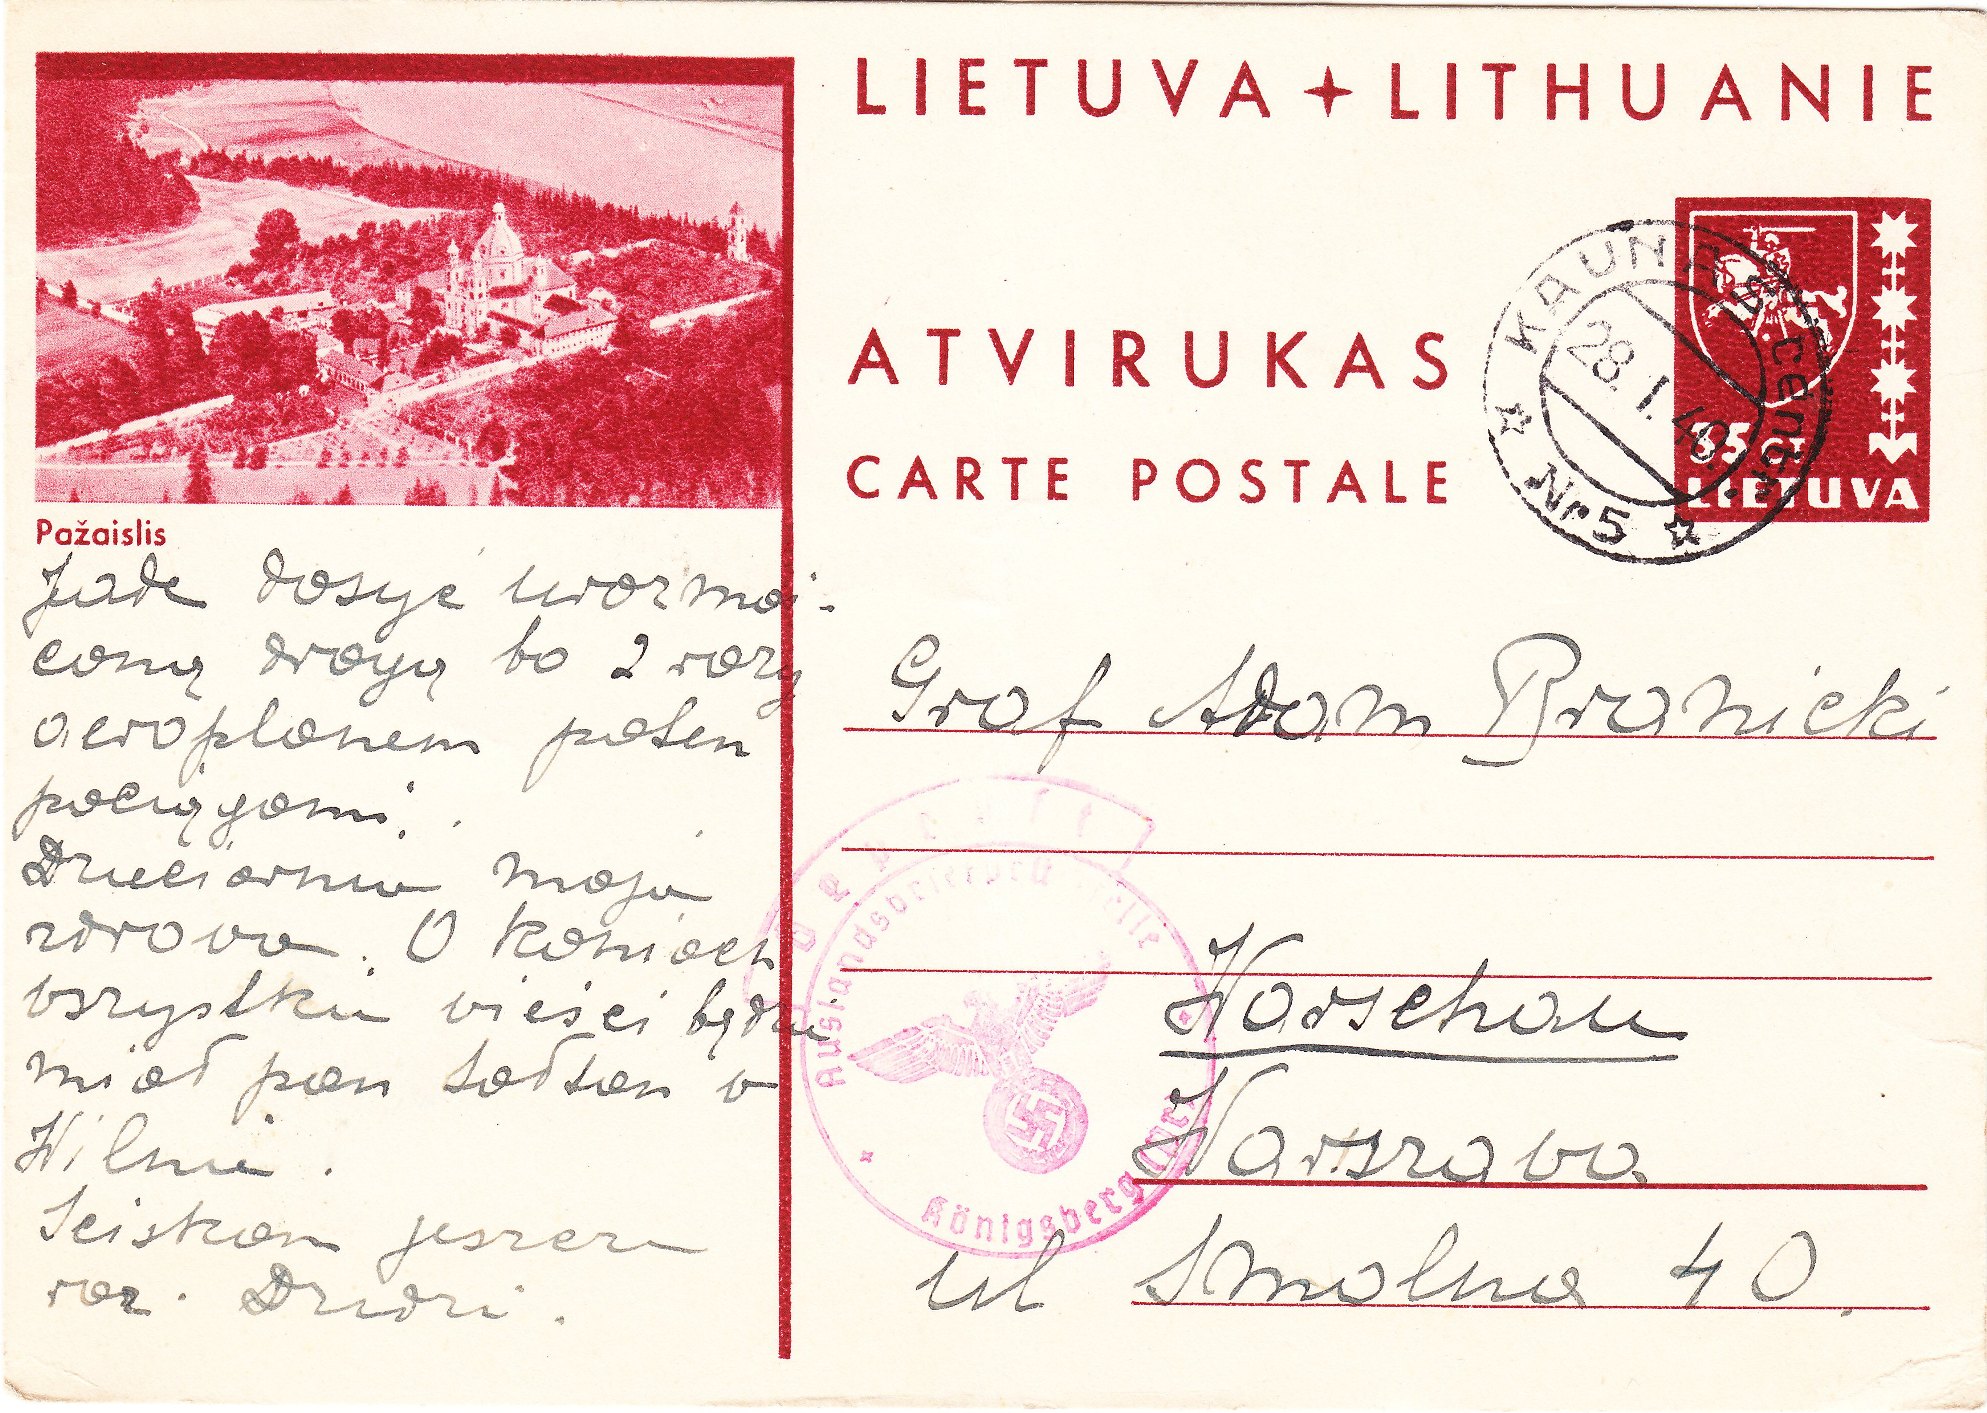 LIETUVA + LITHUANIE
ATVIRUKAS
CARTE POSTALE
KAUNAS centr.
28.I.40.
Nr 5
35 ct
LIETUVA
Pažaislis
Jadę dosyć urozmai-
coną drogą bo 2 razy
aeroplanem potem
pociągami.
Dzieciarnia moja
zdrowa. O koniach
wszystkie wieści będzie
miał pan sołtan w
Wilnie.
Sciskam jeszcze
raz. Dzidzi.
Graf Adam Branicki
Warschau
Warszawa
ul Smolna 40.
Auslandsbriefprüfstelle
Königsberg (Pr)